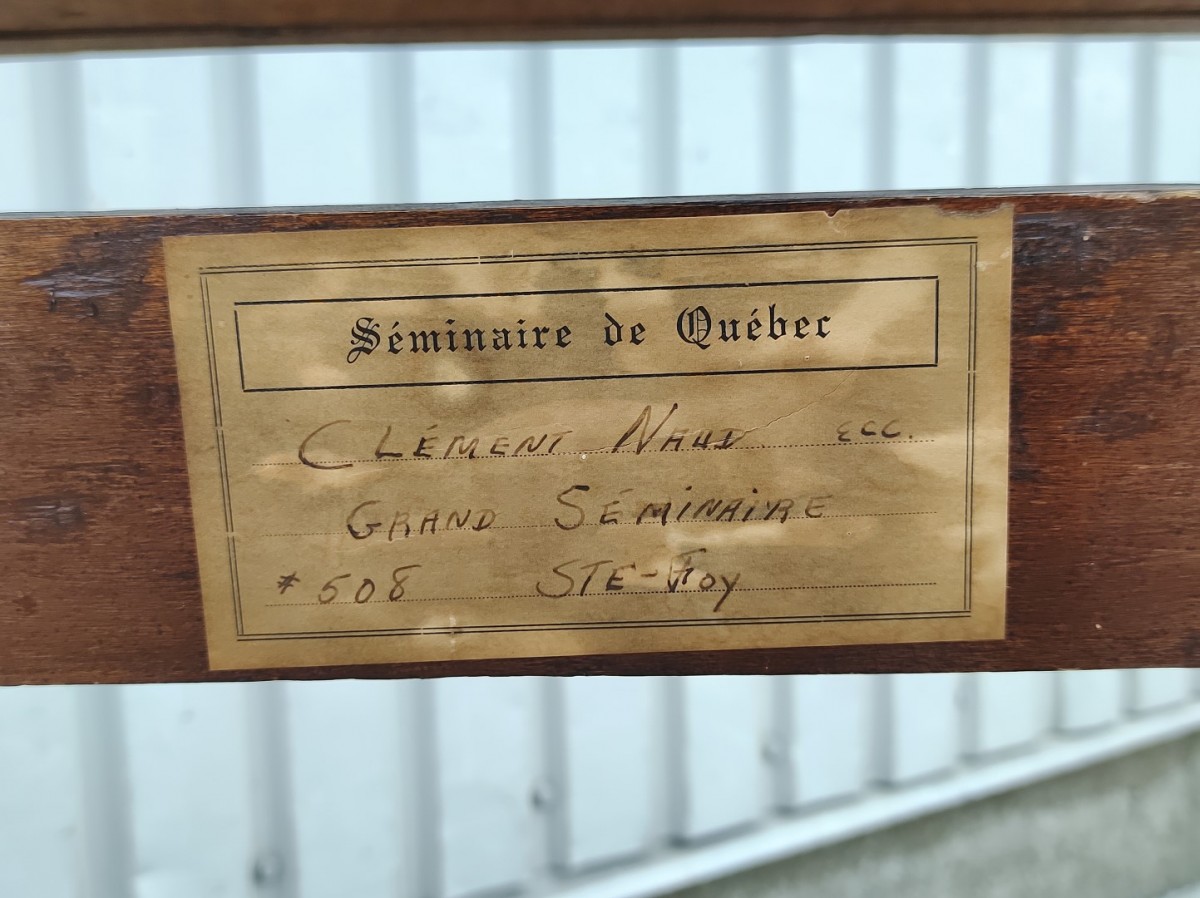 Séminaire de Québec
CLÉMENT NAUD ECC.
GRAND SÉMINAIRE
# 508 STE-FOY